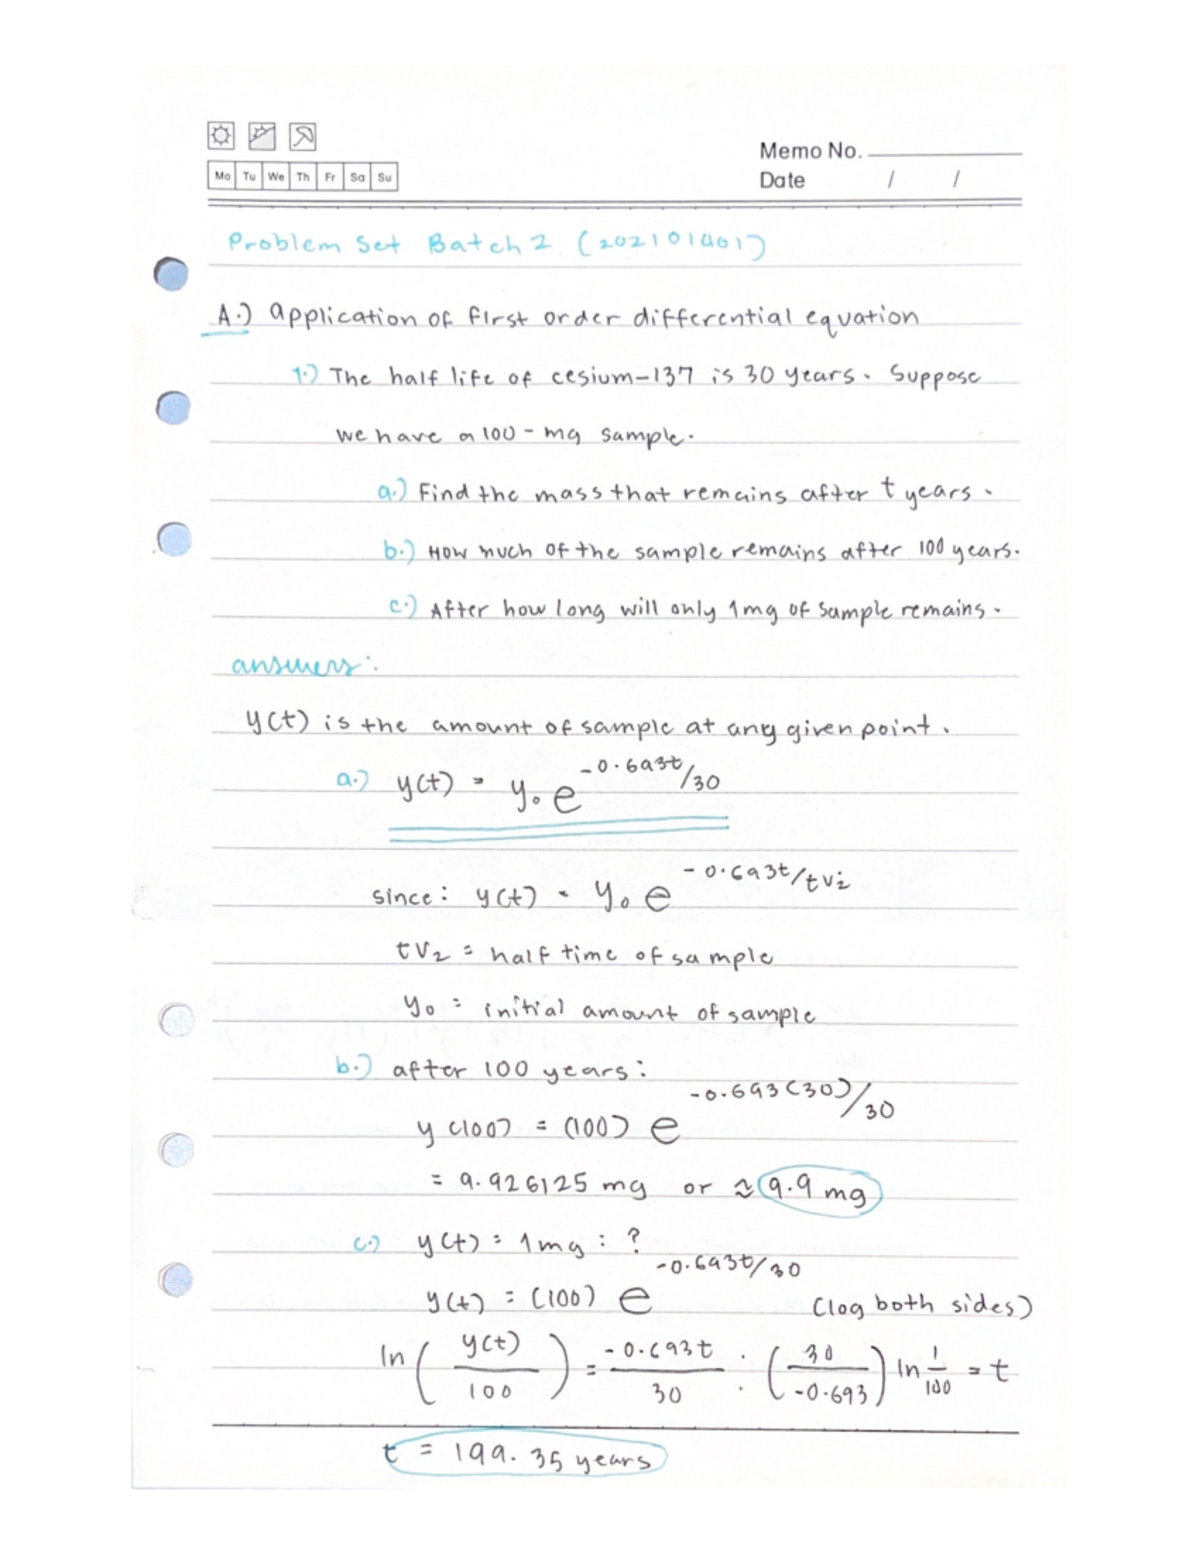 Memo No.
Mo Tu We Th Fr Sa Su
Date / /
Problem Set Batch 2 (202101401)
A.) Application of first order differential equation
1.) The half life of cesium-137 is 30 years. Suppose
we have a 100-mg sample.
a.) Find the mass that remains after t years.
b.) How much of the sample remains after 100 years.
c.) After how long will only 1mg of sample remains.
answers:
y(t) is the amount of sample at any given point.
a.) y(t) = y₀ e^-0.693t/30
since: y(t) = y₀ e^-0.693t/t1/2
t1/2 = half time of sample
y₀ = initial amount of sample
b.) after 100 years:
y(100) = (100) e^-0.693(30)/30
= 9.926125 mg or ≈ 9.9 mg
c.) y(t) = 1mg : ?
y(t) = (100) e^-0.693t/30 (log both sides)
ln (y(t)/100) = -0.693t/30 : (30/-0.693) ln 1/100 = t
t = 199.35 years